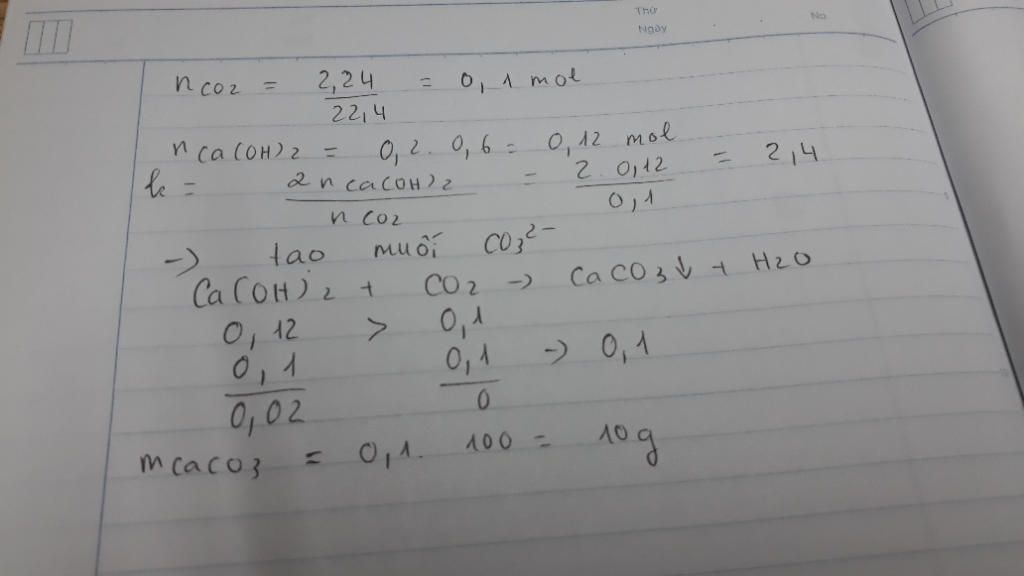 Thứ
Ngày
No
nCO2 = 2,24 / 22,4 = 0,1 mol
nCa(OH)2 = 0,2 . 0,6 = 0,12 mol
k = 2nCa(OH)2 / nCO2 = 2 . 0,12 / 0,1 = 2,4
-> tạo muối CO3²⁻
Ca(OH)2 + CO2 -> CaCO3↓ + H2O
0,12 > 0,1
0,1 0,1 -> 0,1
0,02 0
mCaCO3 = 0,1. 100 = 10g